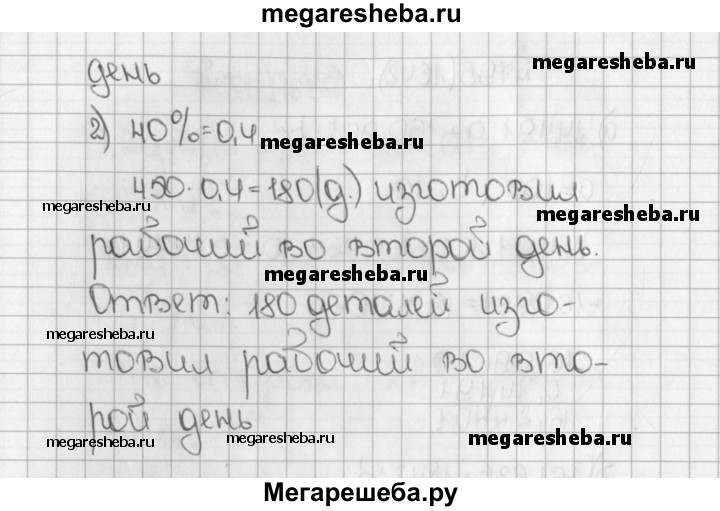 megaresheba.ru
день
megaresheba.ru
2) 40%=0,4
megaresheba.ru
450·0,4=180(д.) изготовил
megaresheba.ru
megaresheba.ru
рабочий во второй день.
megaresheba.ru
Ответ: 180 деталей изго-
megaresheba.ru
товил рабочий во вто-
рой день
megaresheba.ru
megaresheba.ru
megaresheba.ru
Мегарешеба.ру